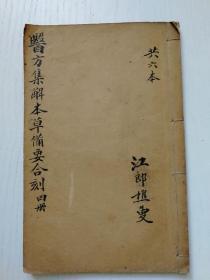 共六本
醫方集解本草備要合刻 四册
江郎植叟